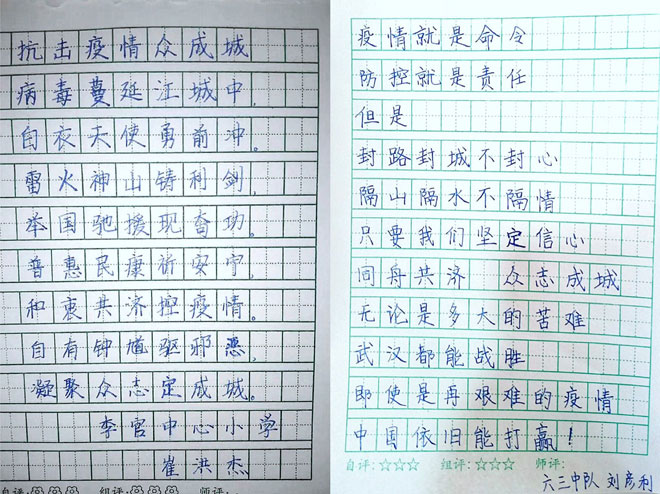 抗击疫情众成城
病毒蔓延江城中。
白衣天使勇前冲。
雷火神山铸利剑,
举国驰援现奇功。
普惠民康祈安宁,
和衷共济控疫情。
自有钟馗驱邪恶,
凝聚众志定成城。
李官中心小学
崔洪杰
自评: 组评: 师评:
疫情就是命令
防控就是责任
但是
封路封城不封心
隔山隔水不隔情
只要我们坚定信心
同舟共济 众志成城
无论是多大的苦难
武汉都能战胜
即使是再艰难的疫情
中国依旧能打赢!
自评:☆☆☆ 组评:☆☆☆ 师评:
六三中队 刘彦利